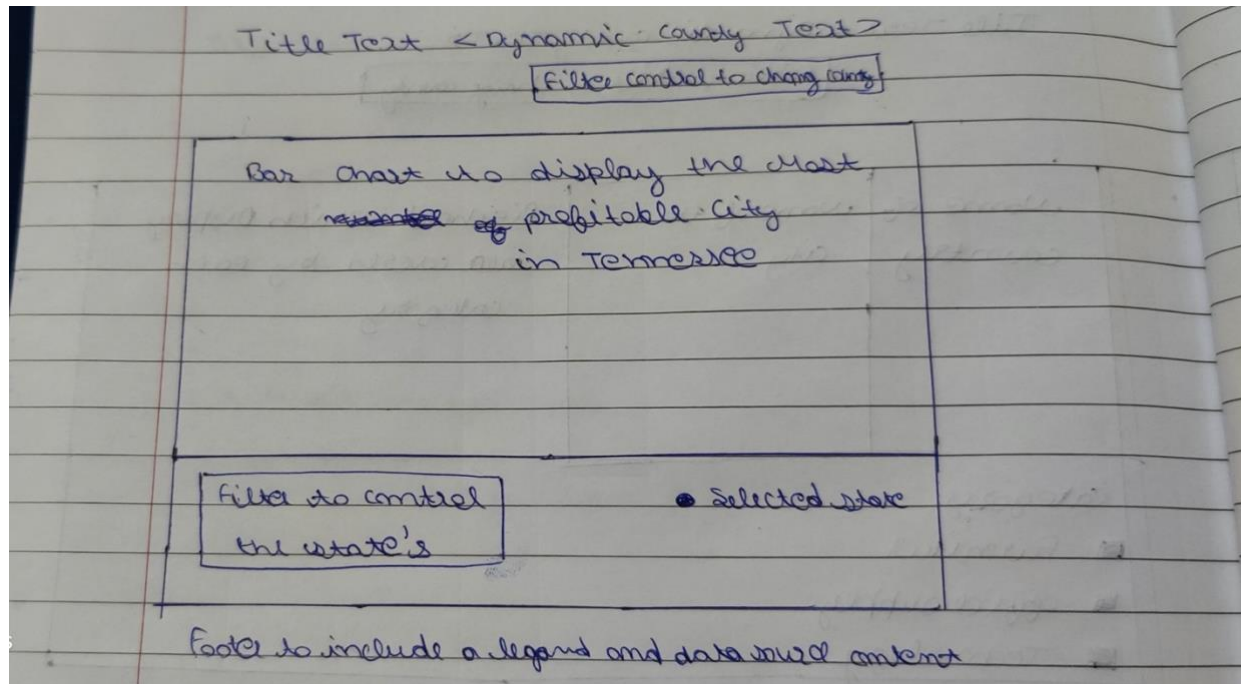 Title Text <Dynamic County Text>
Filter control to chang
Bar chart to display the Most
profitable City
in Tennessee
Filter to control
the state's
Selected state
Footer to include a legand and data source content